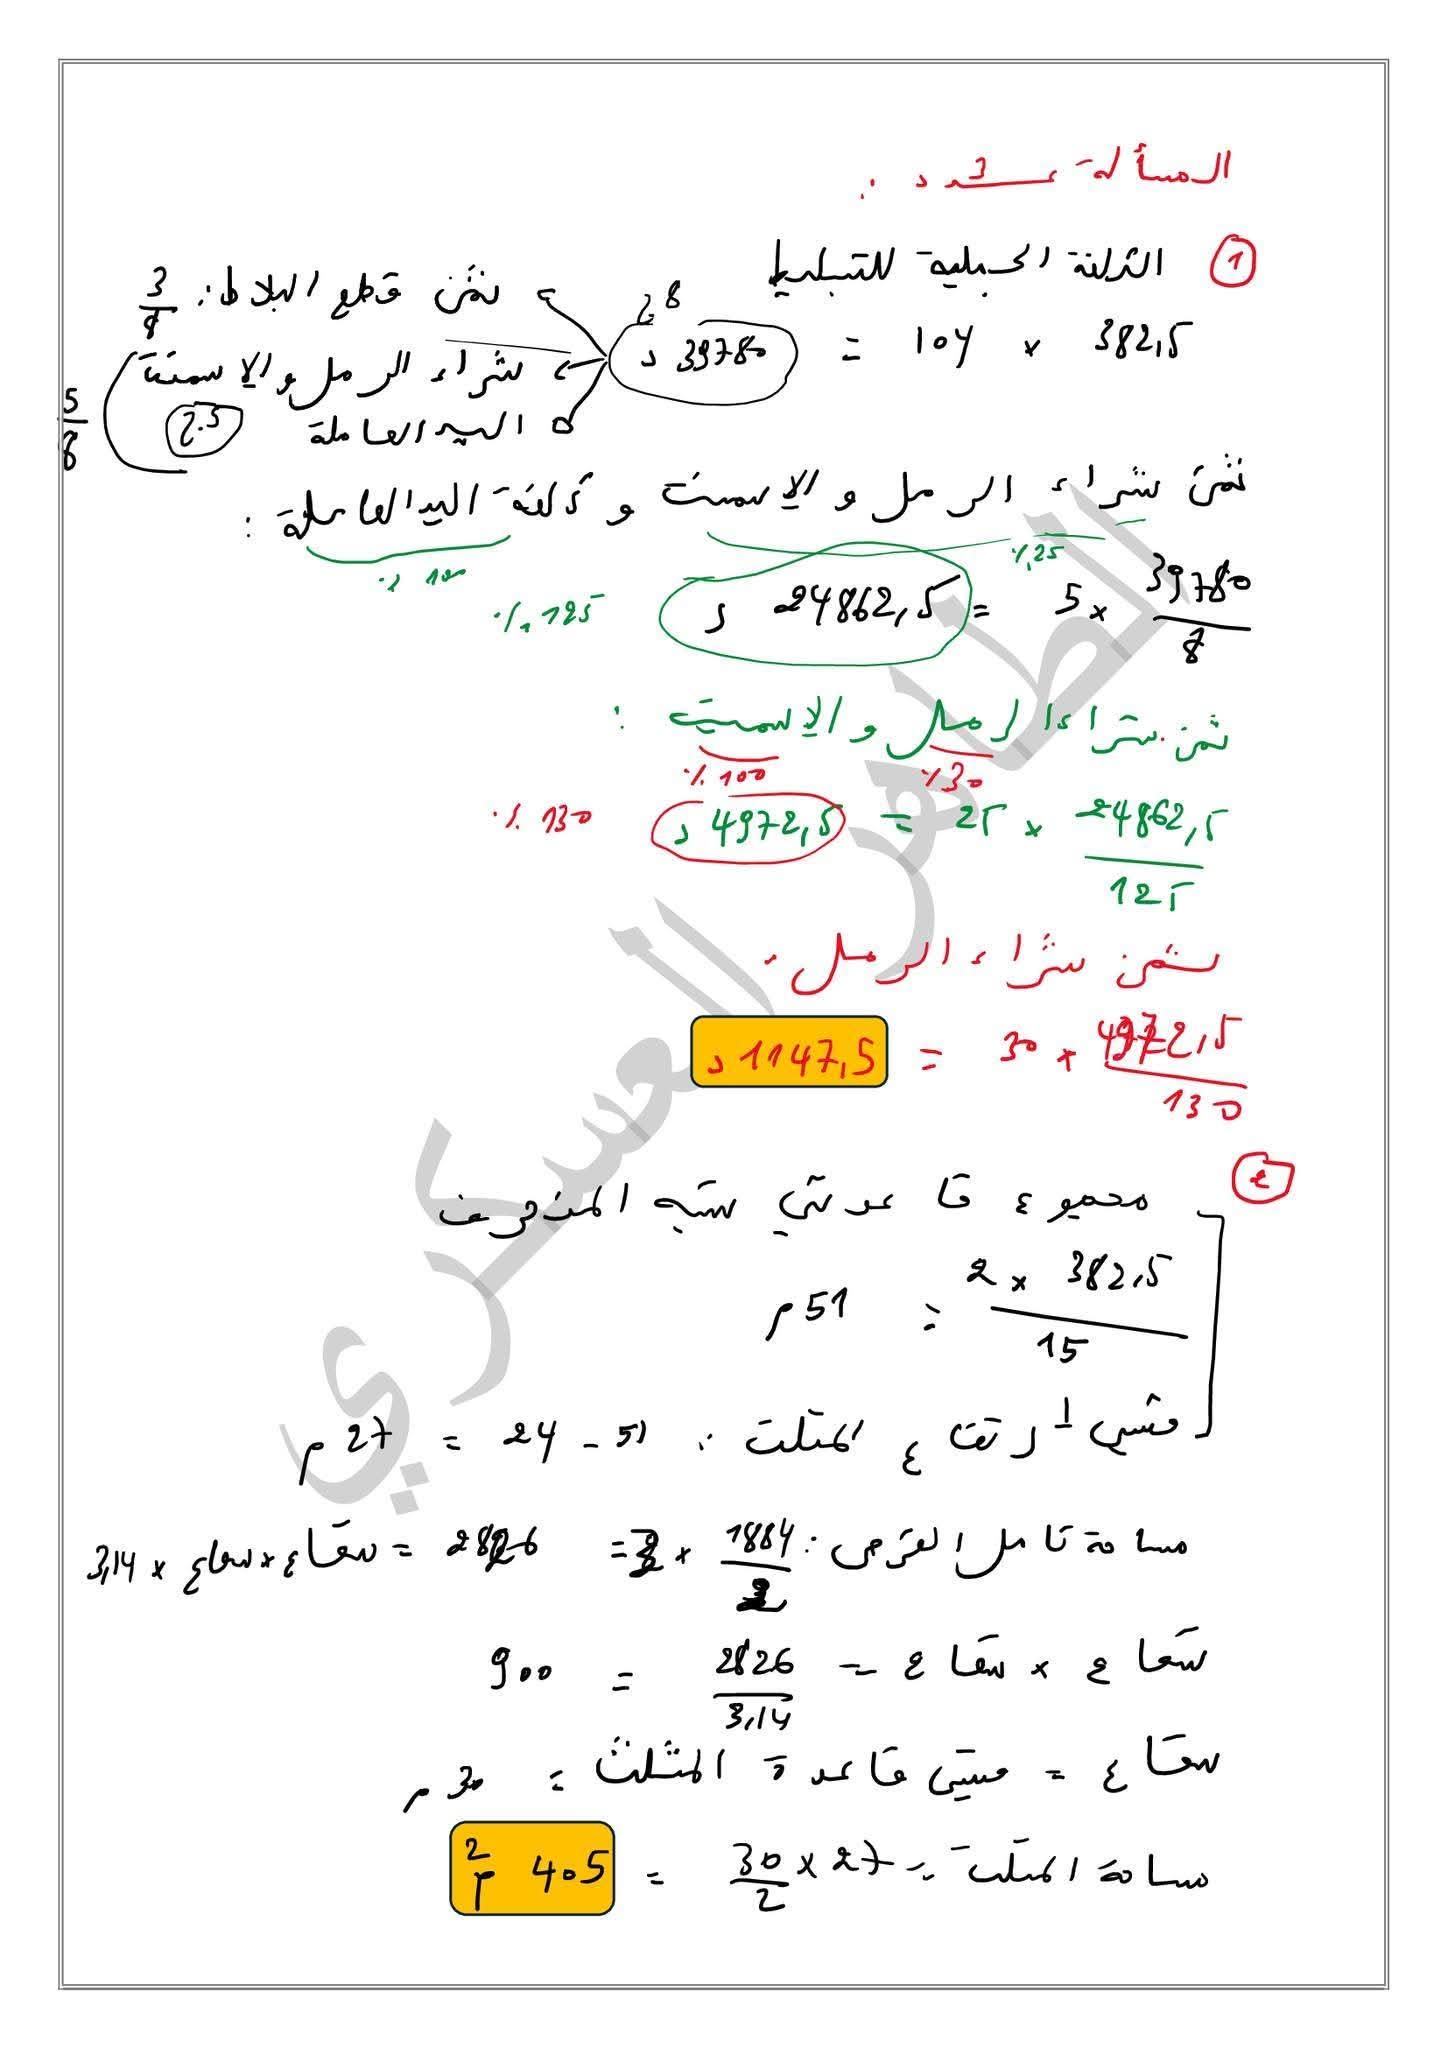 المسألة عـ3ـدد :
1 التكلفة الجملية للتبليط
382,5 × 104 = 39780 د
8 ج
ثمن قطع البلاط : 3/8
شراء الرمل و الاسمنت
اليد العاملة
5 ج
5/8
ثمن شراء الرمل و الاسمنت و تكلفة اليد العاملة :
25٪
100٪
39780/8 × 5 = 24862,5 د
125٪
ثمن شراء الرمل و الاسمنت :
30٪
100٪
24862,5/125 × 25 = 4972,5 د
130٪
ثمن شراء الرمل :
4972,5/130 × 30 = 1147,5 د
2
مجموع قاعدتي شبه المنحرف
2 × 382,5/15 = 51 م
قيس ارتفاع المثلث : 51 - 24 = 27 م
مساحة كامل القرص : 1884/2 × 3 = 2826 = شعاع × شعاع × 3,14
شعاع × شعاع = 2826/3,14 = 900
شعاع = قيس قاعدة المثلث = 30 م
مساحة المثلث = 27 × 30/2 = 405 م2
الطاهر العسكري